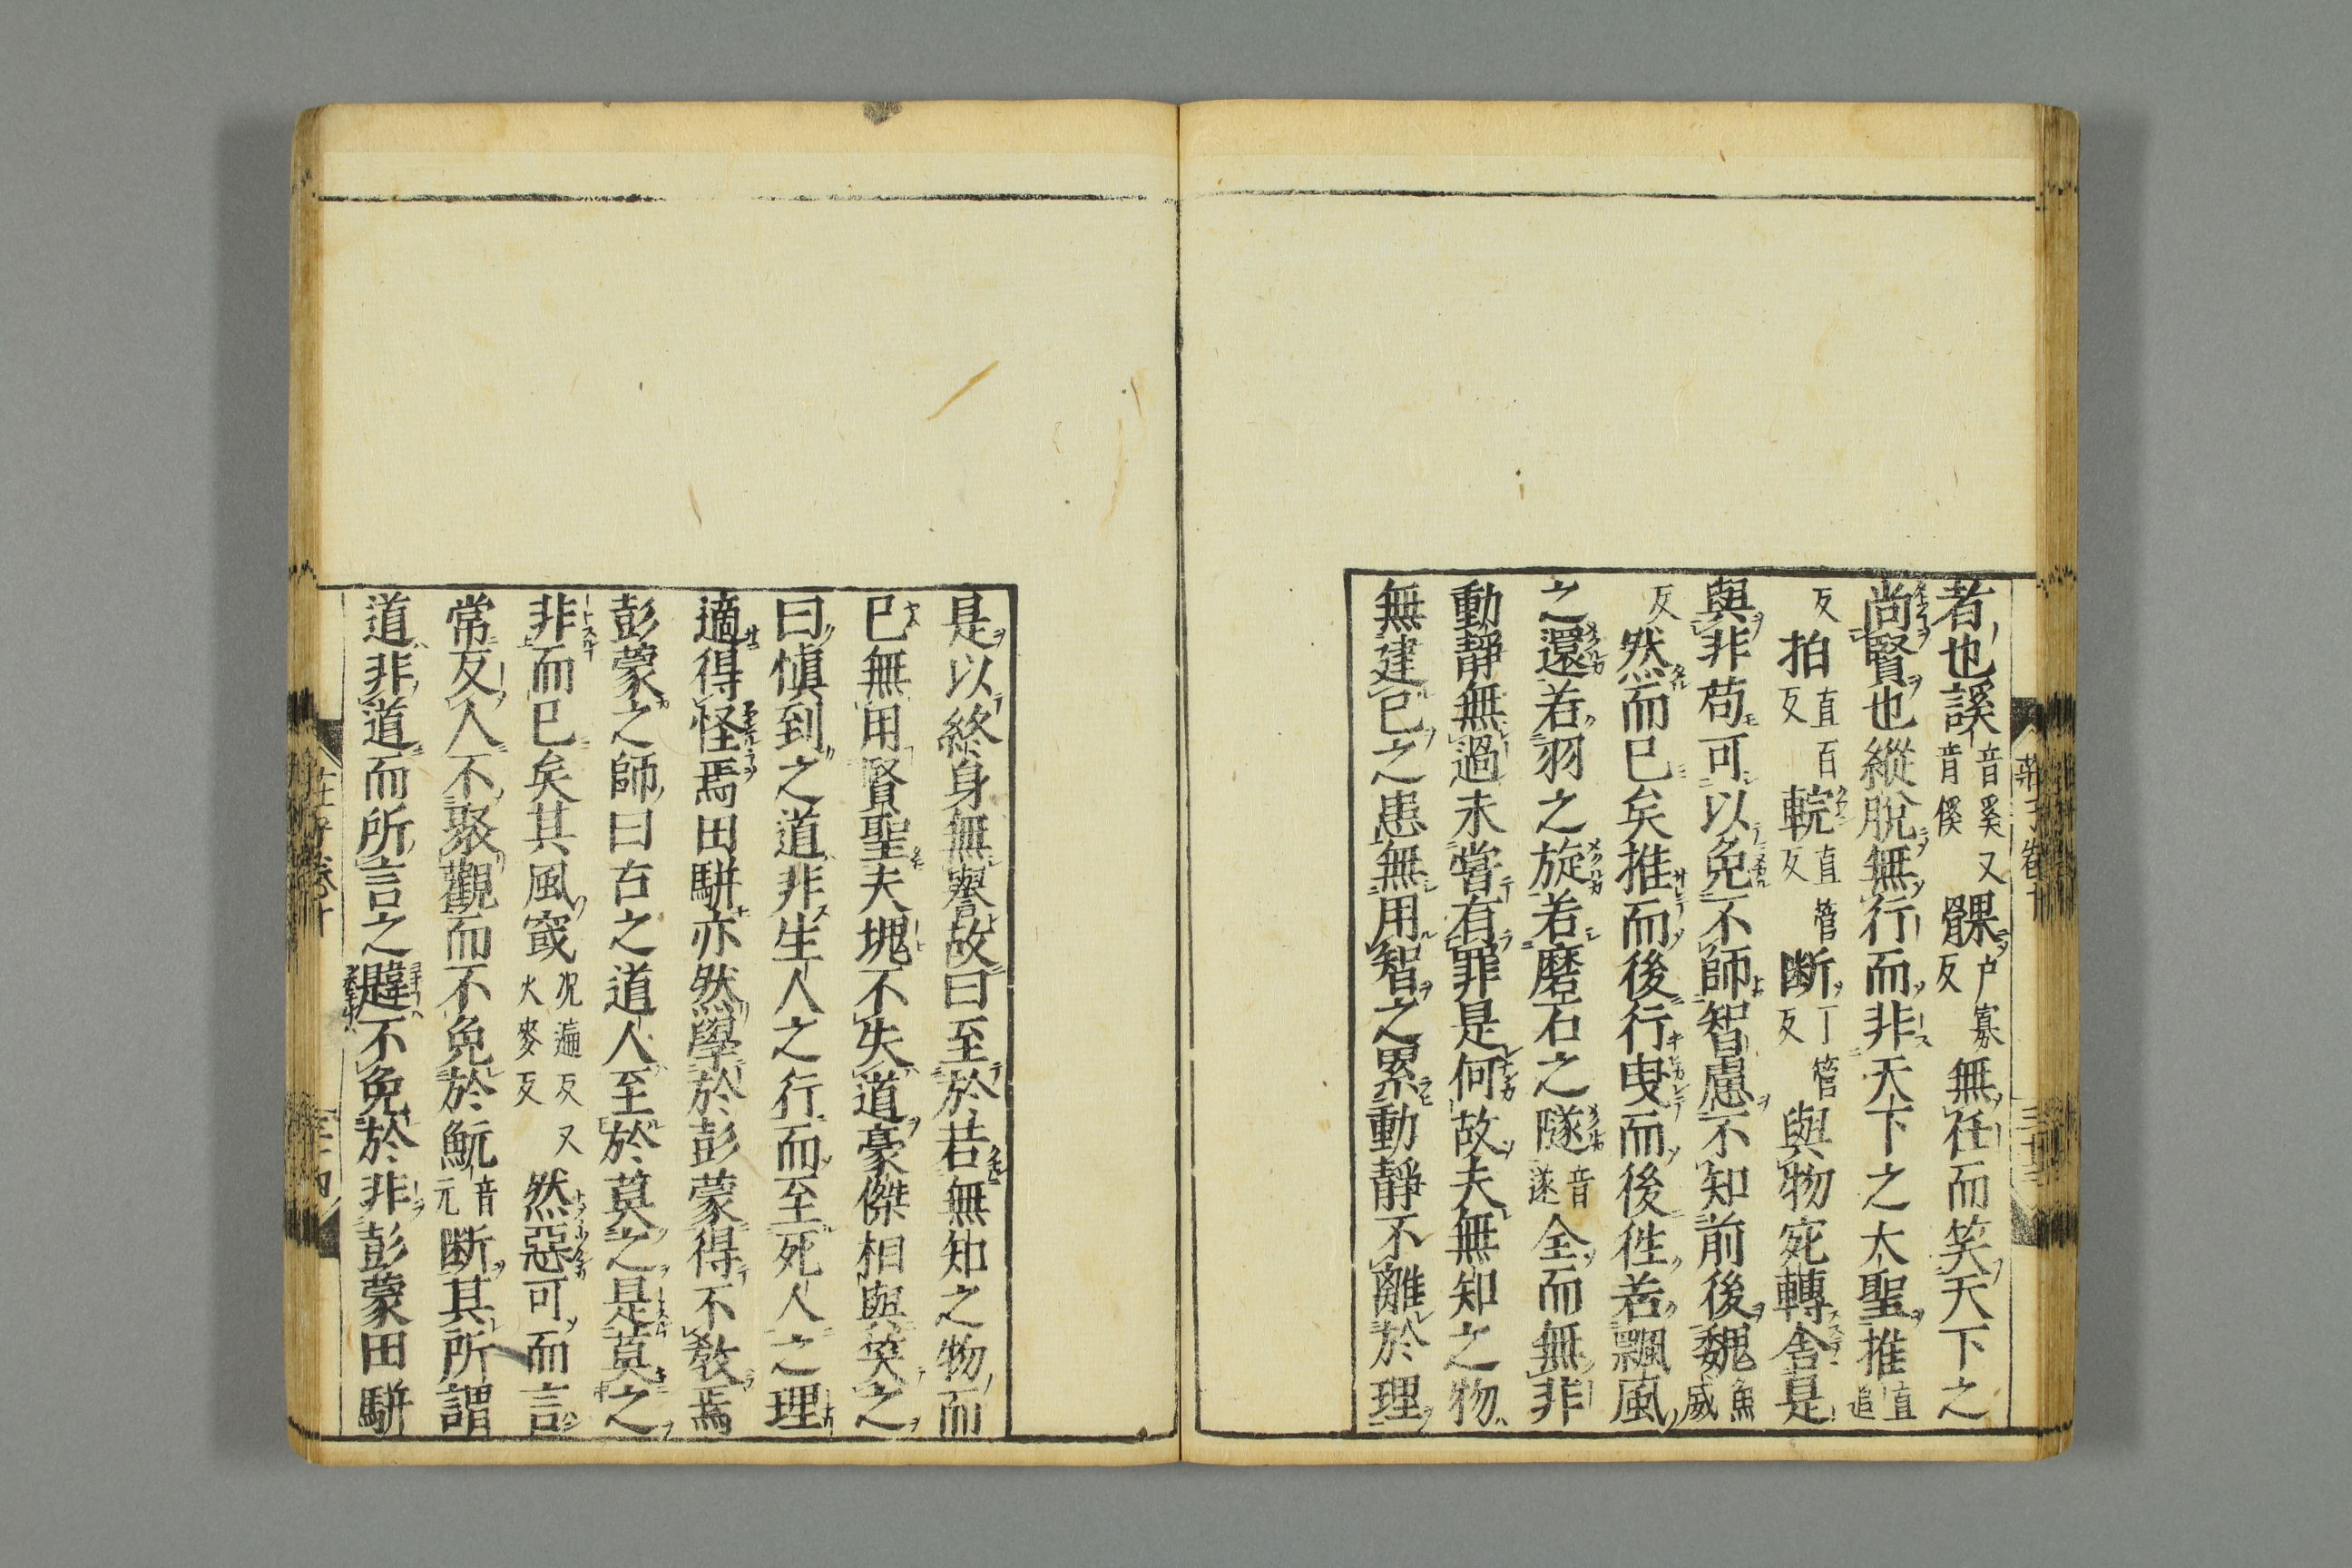 者也謑音奚又音傒髁户寡反無任而笑天下之
尚賢也縱脫無行而非天下之大聖推直追
反拍直百反輐直管反斷丁管反與物宛轉舍是
與非苟可以免不師智慮不知前後魏魚威
反然而已矣推而後行曳而後徃若飄風
之還若羽之旋若磨石之隧音遂全而無非
動靜無過未嘗有罪是何故夫無知之物
無建己之患無用智之累動靜不離於理
莊子卷十
是以終身無譽故曰至於若無知之物而
已無用賢聖夫塊不失道豪傑相與笑之
曰慎到之道非生人之行而至死人之理
適得怪焉田駢亦然學於彭蒙得不教焉
彭蒙之師曰古之道人至於莫之是莫之
非而已矣其風窢况逼反又火麥反然惡可而言
常反人不聚觀而不免於魭音元斷其所謂
道非道而所言之韙不免於非彭蒙田駢
莊子卷十